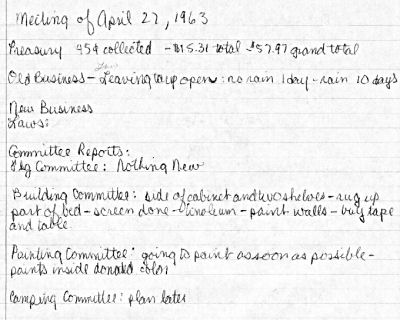 Meeting of April 27, 1963
Treasury 45¢ collected - $15.31 total - $57.97 grand total
Old Business - Leaving tarp open: no rain 1 day - rain 10 days
New Business
Laws:
Committee Reports:
Committee: Nothing New
Building Committee: side of cabinet and two shelves - rug up
part of bed - screen done - linoleum - paint walls - buy tape
and table.
Painting Committee: going to paint as soon as possible -
paints inside donated color
Camping Committee: plan later